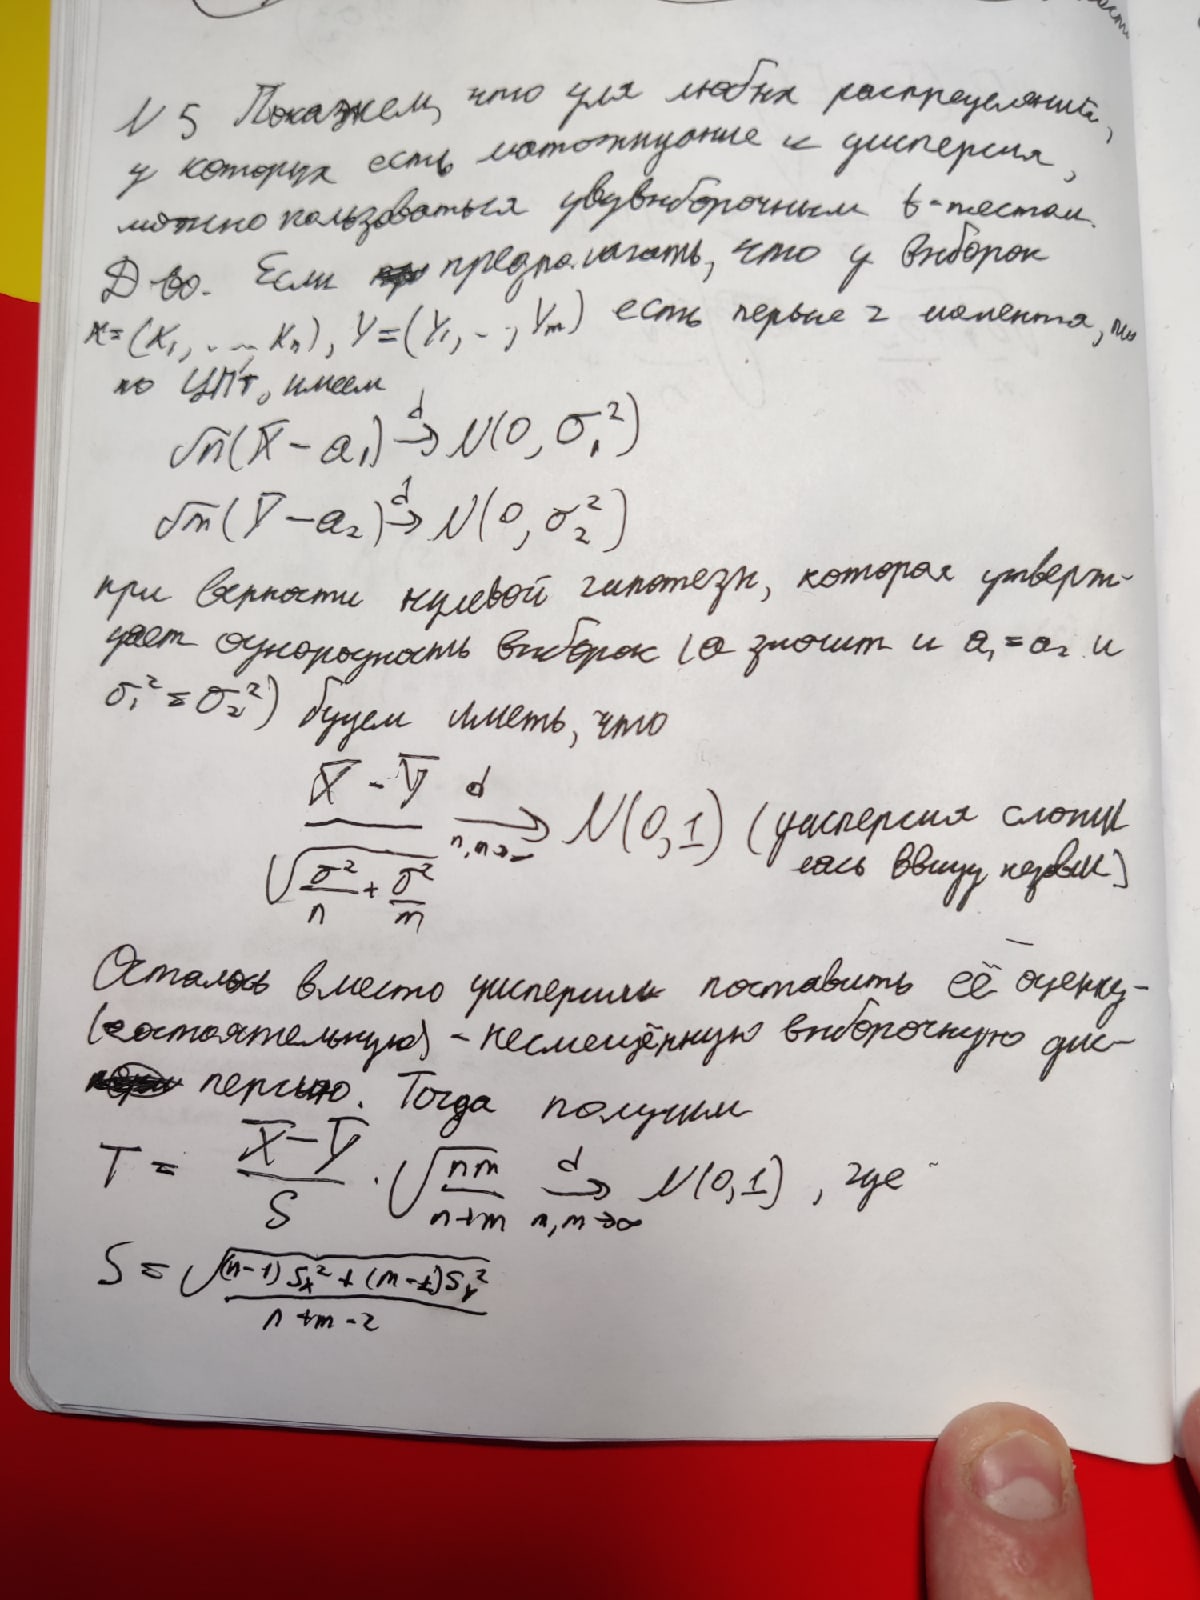 N 5 Покажем, что для любых распределений,
у которых есть матожидание и дисперсия,
можно пользоваться двувыборочным t-тестом.
Д-во. Если предполагать, что у выборок
X=(X₁, ..., Xₙ), Y=(Y₁, .., Yₘ) есть первые 2 момента, то
по ЦПТ, имеем
√n(X̅ - a₁) →ᵈ N(0, σ₁²)
√m(Y̅ - a₂) →ᵈ N(0, σ₂²)
при верности нулевой гипотезы, которая утверж-
дает однородность выборок (а значит и a₁=a₂ и
σ₁²=σ₂²) будем иметь, что
(X̅ - Y̅) / √(σ²/n + σ²/m) →ᵈ n,m→∞ N(0,1) (дисперсия сложи
лась ввиду незав)
Осталось вместо дисперсии поставить её оценку-
(состоятельную) - несмещённую выборочную дис-
персию. Тогда получим
T = (X̅ - Y̅)/S · √(nm/(n+m)) →ᵈ n,m→∞ N(0,1), где
S = √(((n-1)Sₓ² + (m-1)Sᵧ²)/(n+m-2))